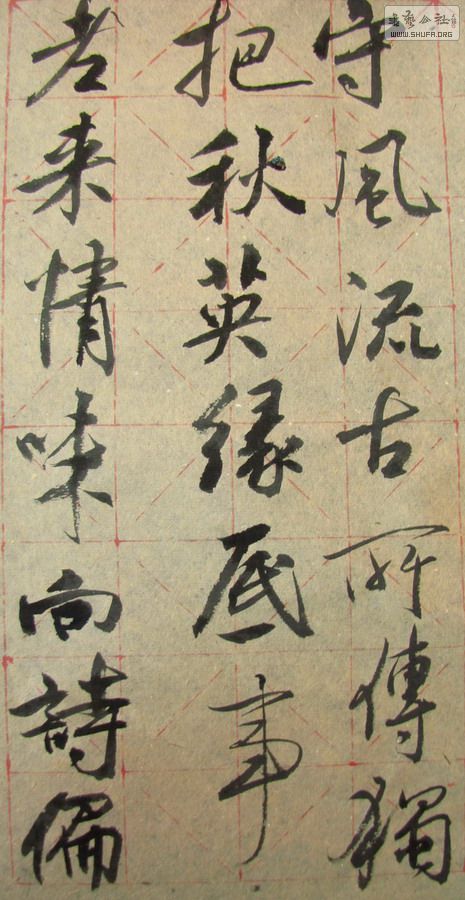 守風流古所傳獨
把秋英緣底事
老来情味向詩偏
書藝公社
WWW.SHUFA.ORG